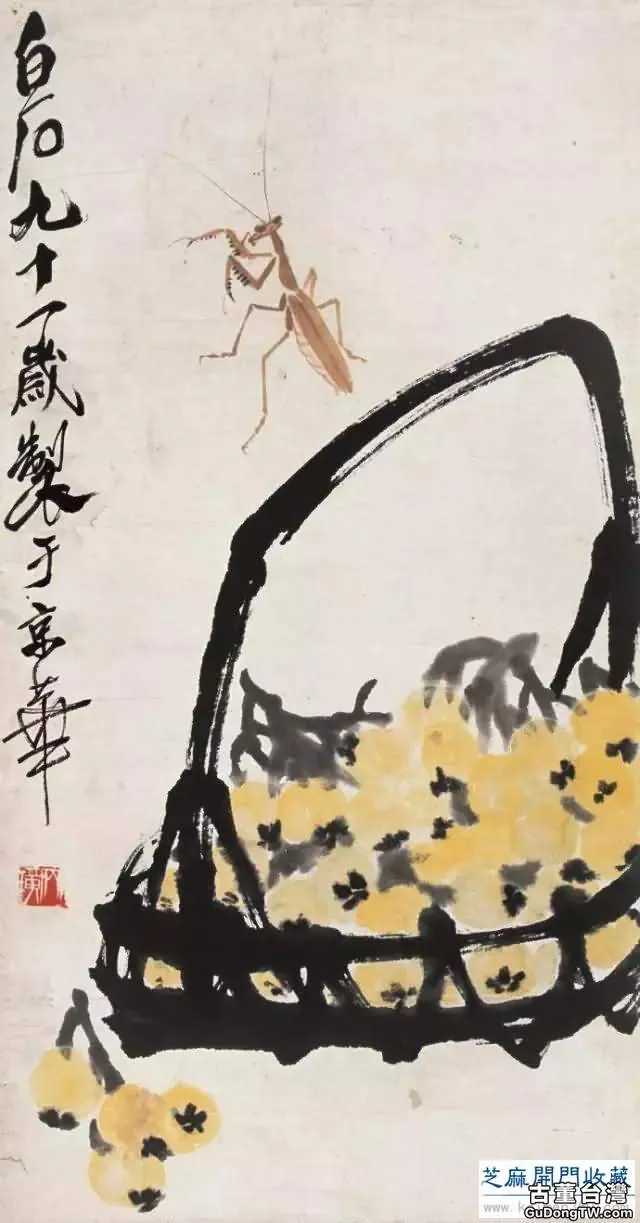 白石九十一歲製于京華
芝麻開門收藏
古董台灣
GuDongTW.com